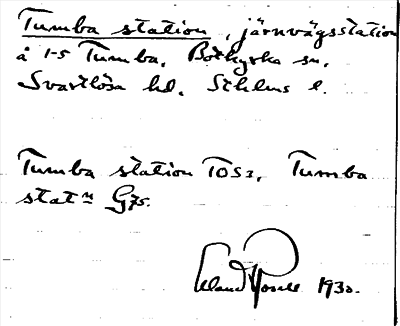 Tumba station, järnvägsstation
å 1-5 Tumba, Botkyrka sn.
Svartlösa hd. Sthlms l.
Tumba station TOS3, Tumba
stat:n G75.
1930.